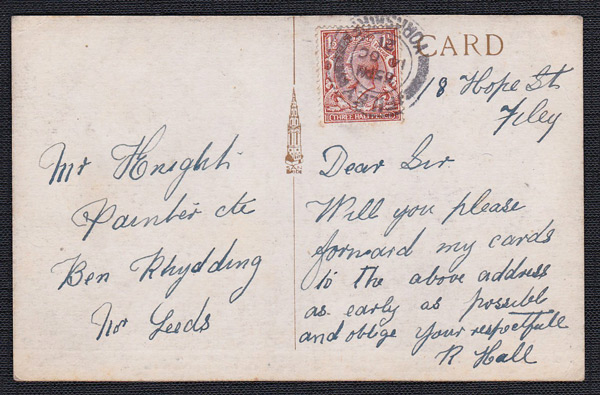 CARD
THREE HALF
18 Hope St
Filey
Mr Knight
Painter etc
Ben Rhydding
Nr Leeds
Dear Sir
Will you please
forward my cards
to the above address
as early as possible
and oblige your respectfull
R Hall